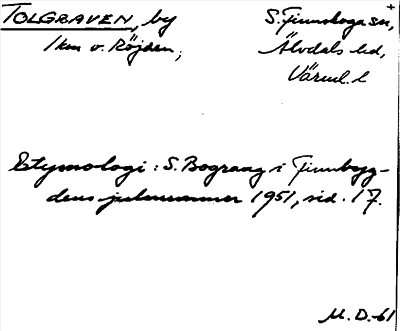 TOLGRAVEN, by
1 km v. Röjden;
S. Finnskoga sn,
Älvdals hd,
Värml. l
Etymologi: S. Bograng i Finnbyg-
dens julnummer 1951, sid. 17.
M. D. -61